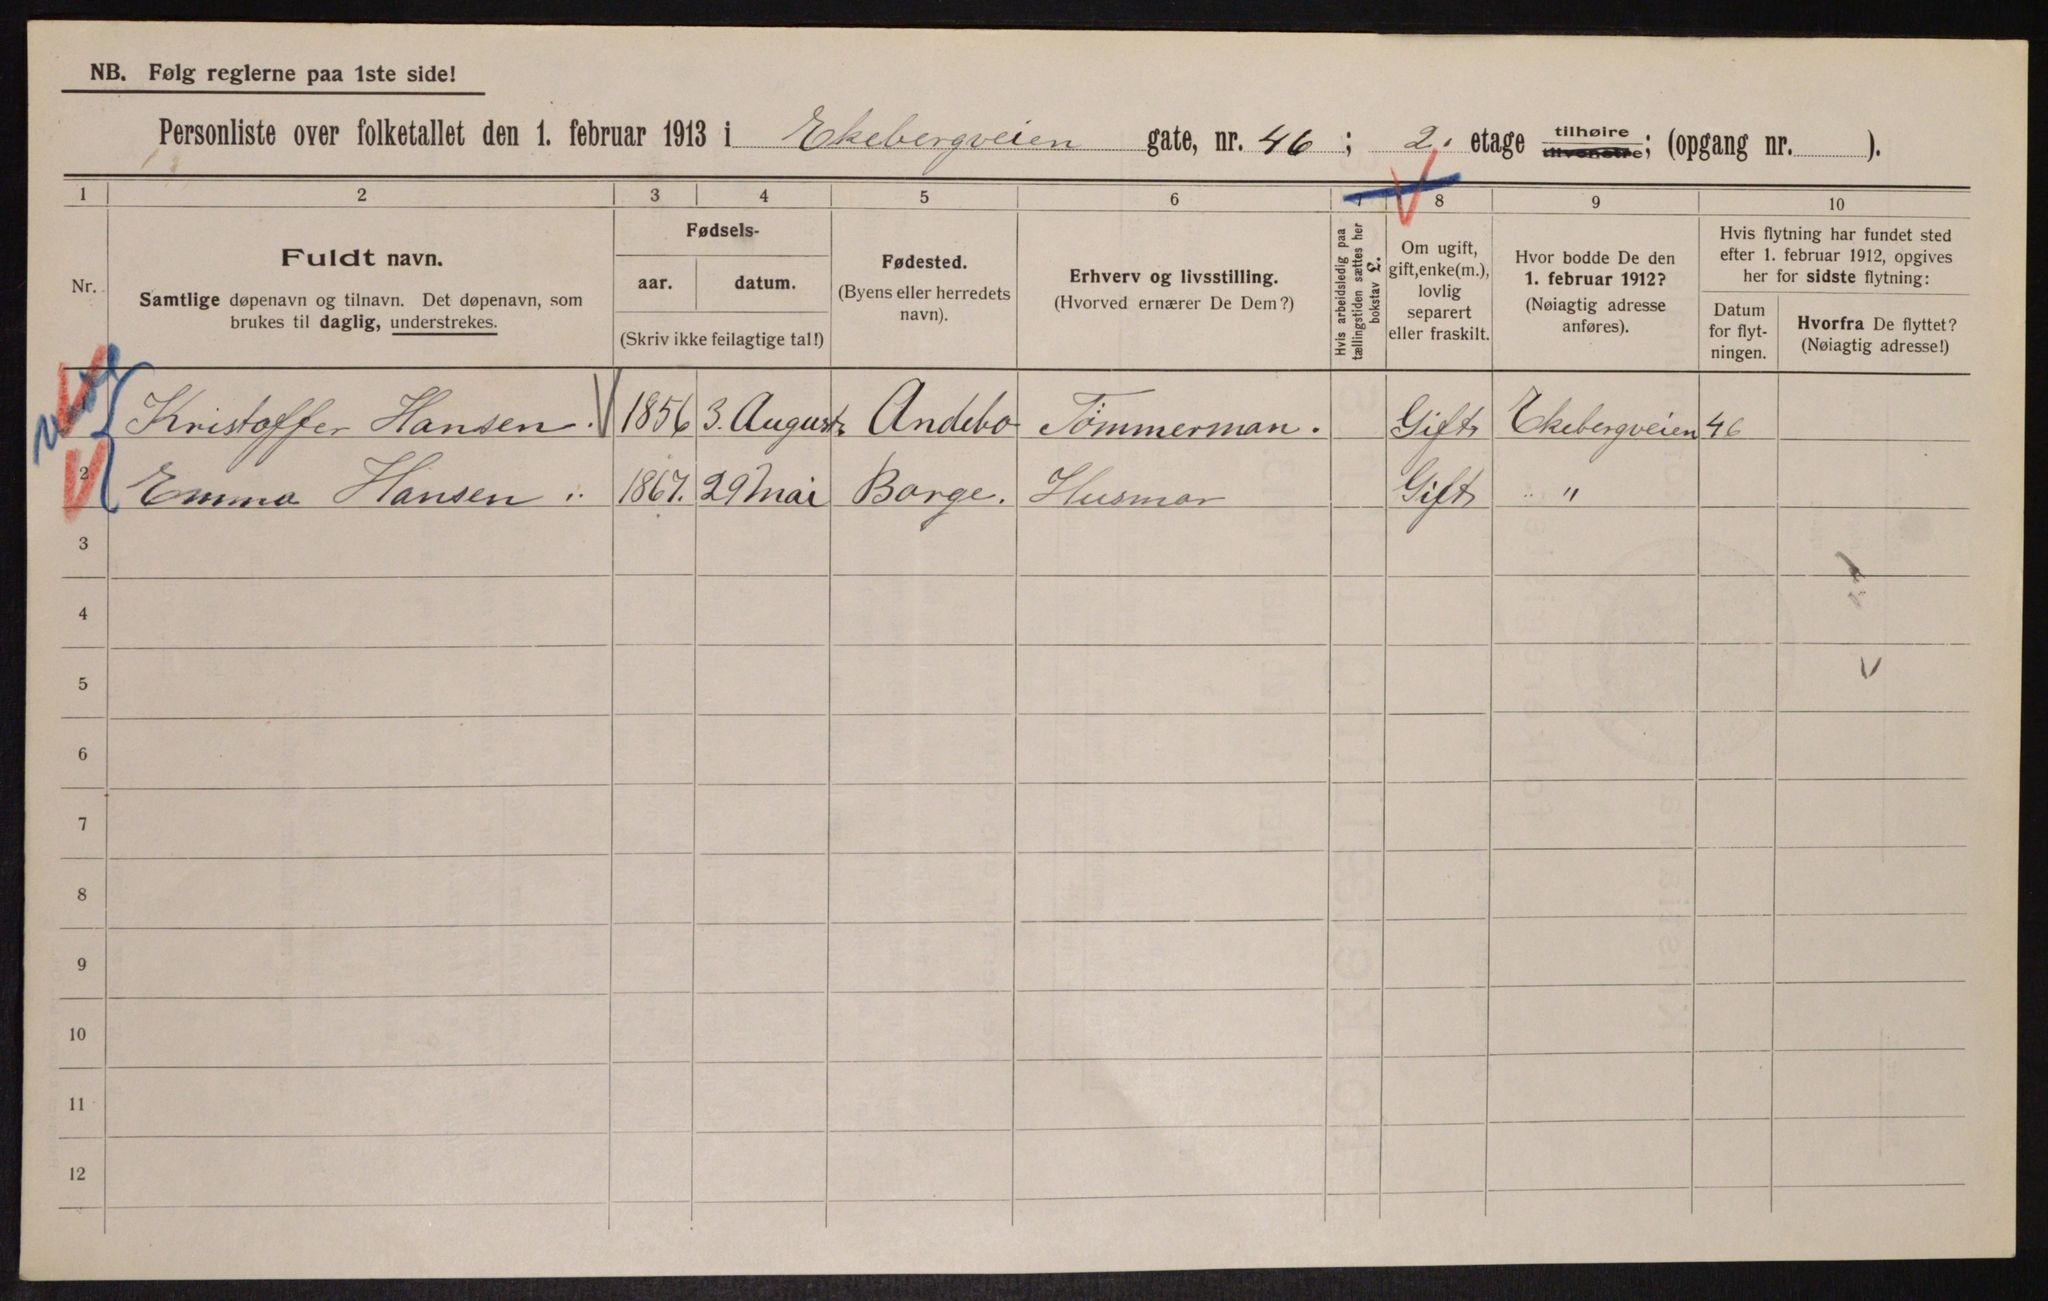 NB. Følg reglerne paa 1ste side!
Personliste over folketallet den 1. februar 1913 i Ekebergveien gate, nr. 46; 2. etage tilhøire tilvenstre; (opgang nr. ).
1 2 3 4 5 6 7 8 9 10
Nr.
Fuldt navn.
Samtlige døpenavn og tilnavn. Det døpenavn, som
brukes til daglig, understrekes.
Fødsels-
aar. datum.
(Skriv ikke feilagtige tal!)
Fødested.
(Byens eller herredets
navn).
Erhverv og livsstilling.
(Hvorved ernærer De Dem?)
Hvis arbeidsledig paa
tællingstiden sættes her
bokstav L.
Om ugift,
gift, enke(m.),
lovlig
separert
eller fraskilt.
Hvor bodde De den
1. februar 1912?
(Nøiagtig adresse
anføres).
Hvis flytning har fundet sted
efter 1. februar 1912, opgives
her for sidste flytning:
Datum
for flyt-
ningen.
Hvorfra De flyttet?
(Nøiagtig adresse!)
1 Kristoffer Hansen. 1856 3. August Andebo Tømmerman. Gift Ekebergveien 46
2 Emma Hansen 1867. 29 Mai Borge. Husmor Gift "
3
4
5
6
7
8
9
10
11
12